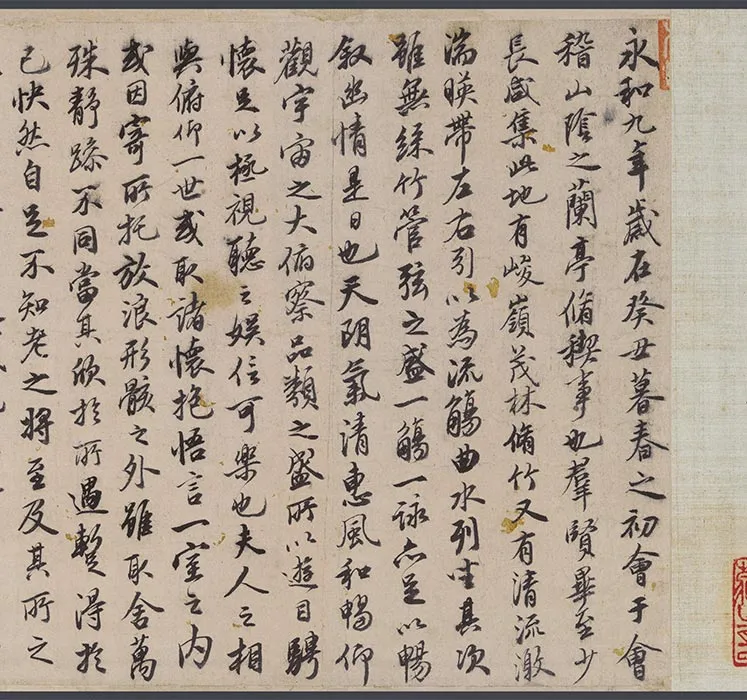 永和九年歲在癸丑暮春之初會于會
稽山陰之蘭亭脩稧事也羣賢畢至少
長咸集此地有峻嶺茂林脩竹又有清流激
湍暎帶左右引以為流觴曲水列坐其次
雖無絲竹管弦之盛一觴一詠亦足以暢
叙幽情是日也天朗氣清惠風和暢仰
觀宇宙之大俯察品類之盛所以遊目騁
懷足以極視聽之娛信可樂也夫人之相
與俯仰一世或取諸懷抱悟言一室之內
或因寄所托放浪形骸之外雖取舍萬
殊靜躁不同當其欣於所遇暫得於
己快然自足不知老之將至及其所之